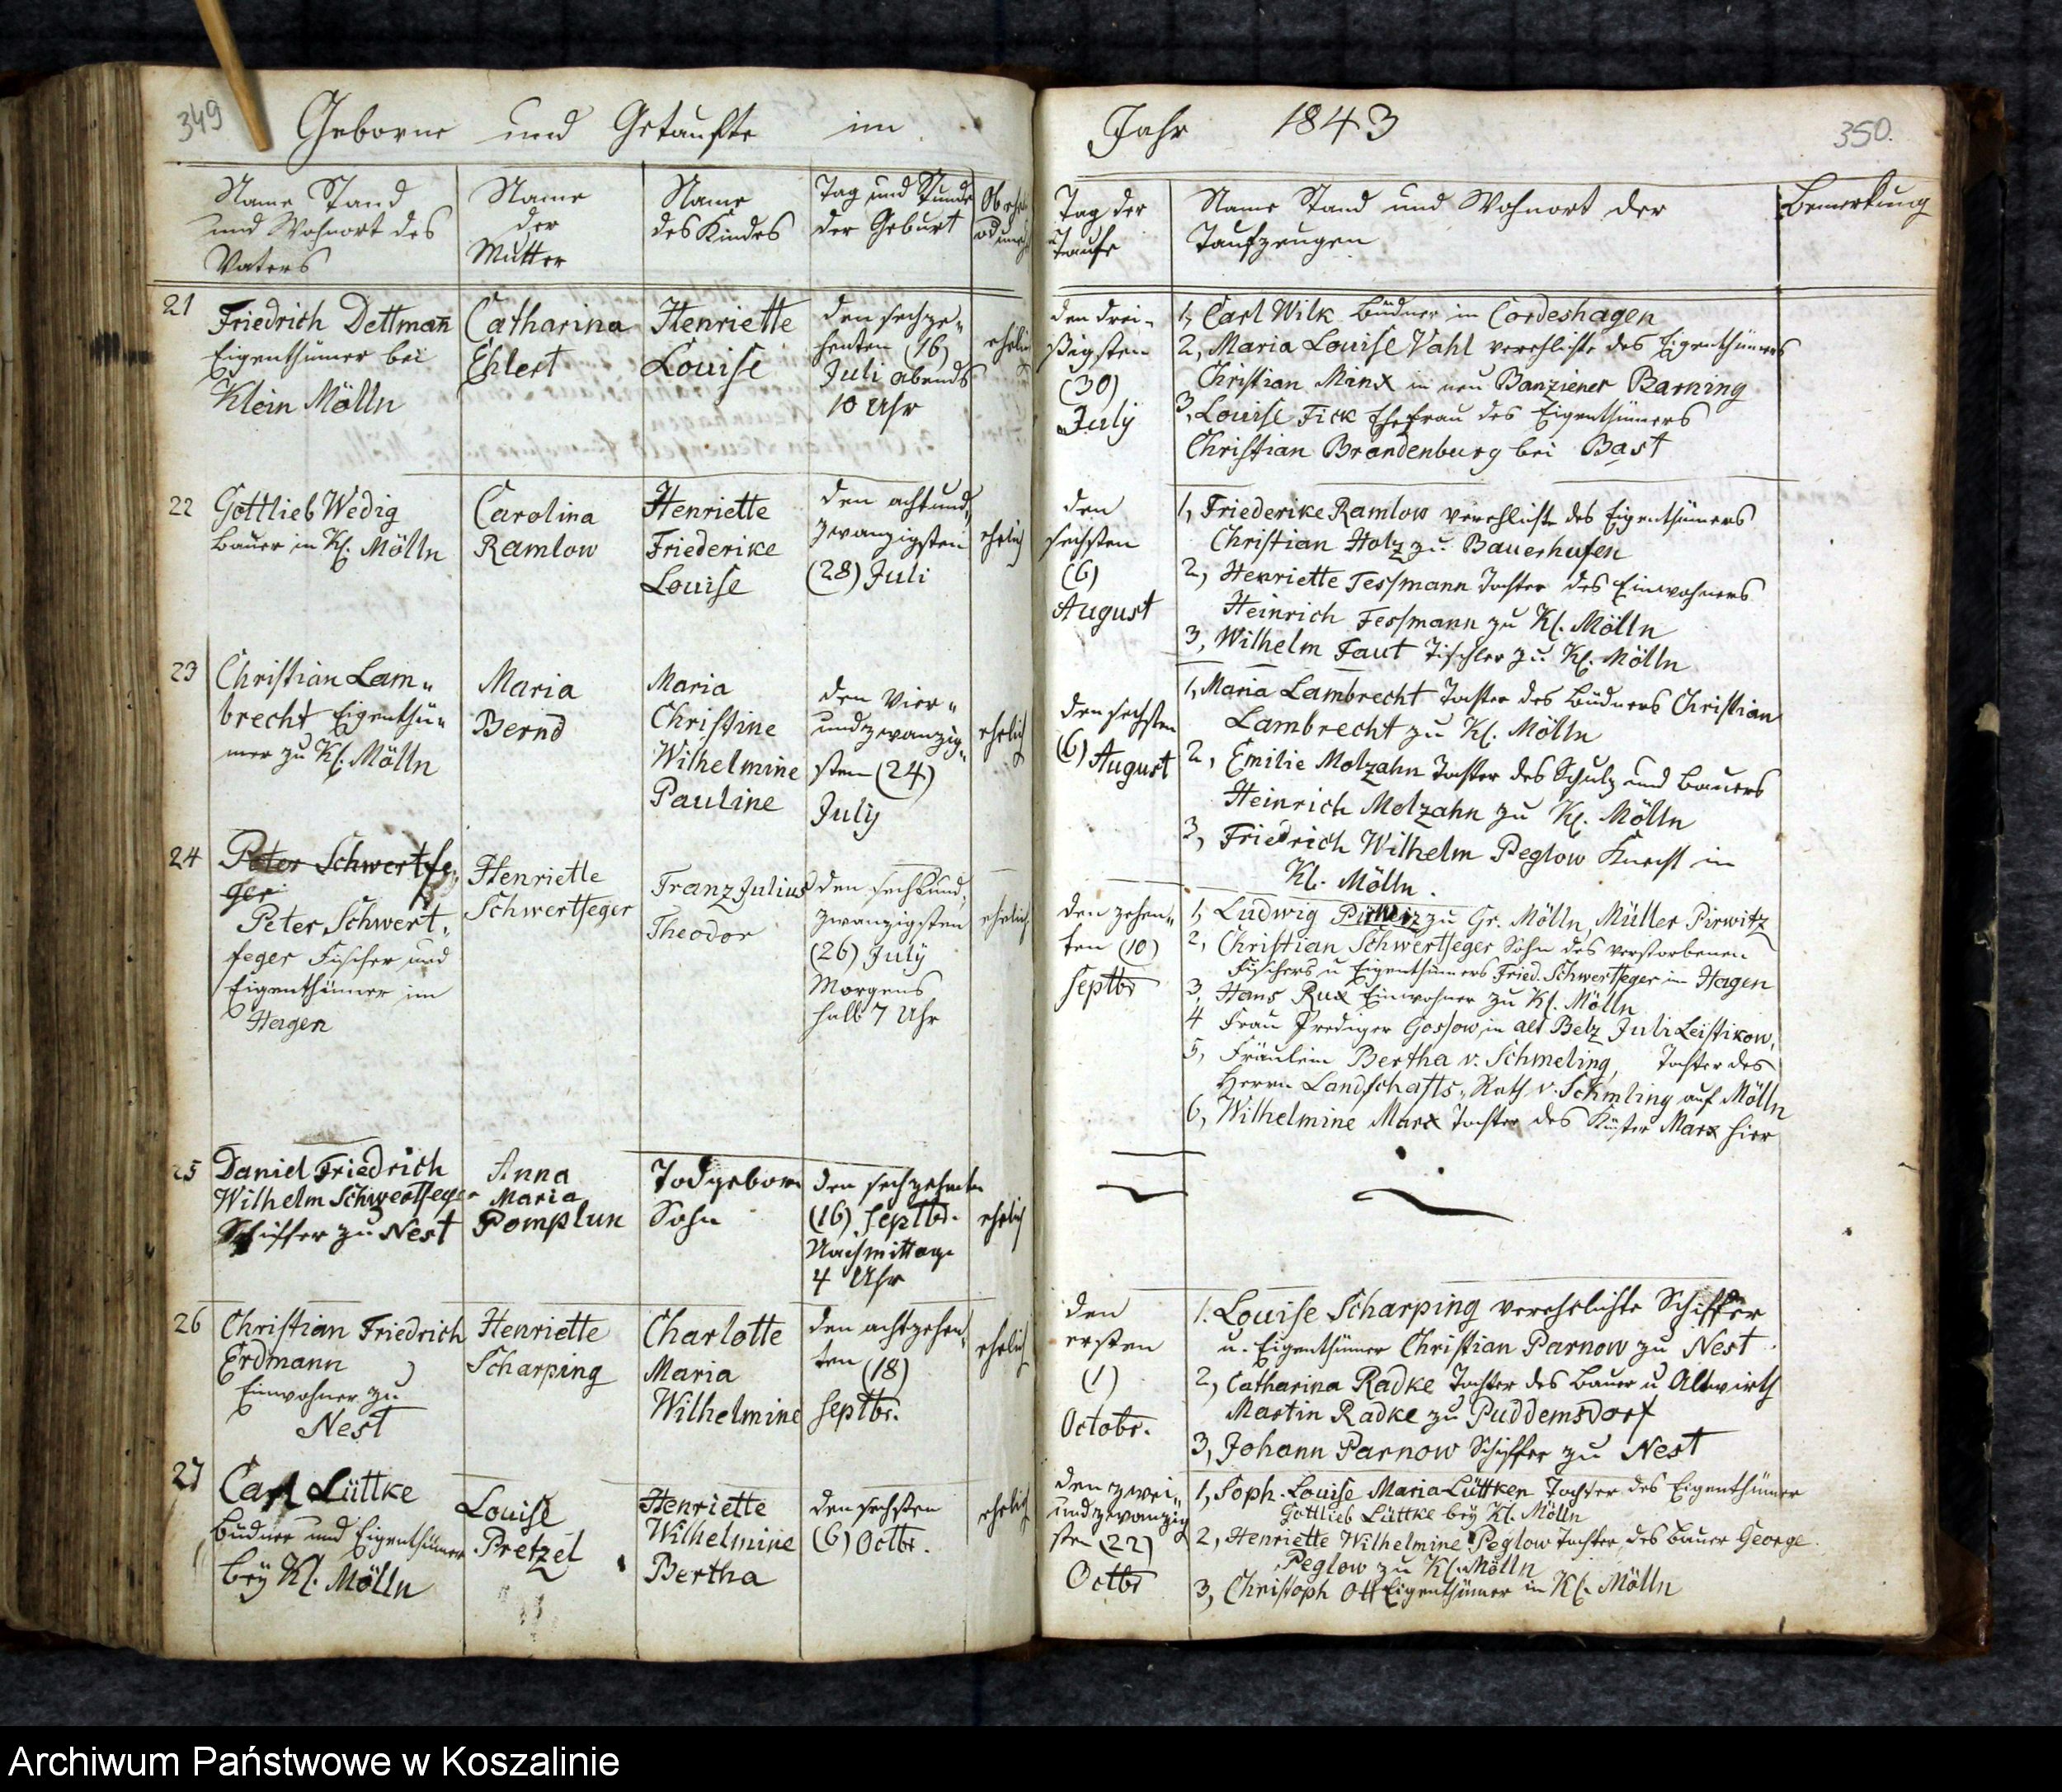 349
Geborne und Getaufte im
Name Stand
und Wohnort des
Vaters
Name
der
Mutter
Name
des Kindes
Tag und Stunde
der Geburt
Ob ehel.
od unehl
21
Friedrich Dettmañ
Eigenthümer bei
Klein Mölln
Catharina
Ehlert
Henriette
Louise
den sechze„
henten (16)
Juli abends
10 Uhr
ehelich
22
Gottlieb Wedig
Bauer in Kl. Mölln
Carolina
Ramlow
Henriette
Friederike
Louise
den achtund„
zwanzigsten
(28) Juli
ehelich
23
Christian Lam„
brecht Eigenthü„
mer zu Kl. Mölln
Maria
Bernd
Maria
Christine
Wilhelmine
Pauline
den vier„
undzwanzig„
sten (24)
July
ehelich
24
Peter Schwertfe„
ger
Peter Schwert„
feger Fischer und
Eigenthümer im
Hagen
Henriette
Schwertfeger
Franz Julius
Theodor
den sechsund„
zwanzigsten
(26) July
Morgens
halb 7 Uhr
ehelich
25
Daniel Friedrich
Wilhelm Schwertfeger
Schiffer zu Nest
Anna
Maria
Pomplun
Todgeborn
Sohn
den sechzehnten
(16) Septbr.
Nachmittage
4 Uhr
ehelich
26
Christian Friedrich
Erdmann
Einwohner zu
Nest
Henriette
Scharping
Charlotte
Maria
Wilhelmine
den achtzehen„
ten (18)
Septbr.
ehelich
27
Carl Lüttke
Büdner und Eigenthümer
bey Kl. Mölln
Louise
Pretzel
Henriette
Wilhelmine
Bertha
den sechsten
(6) Octbr.
ehelich
Jahr 1843
350.
Tag der
Taufe
Name Stand und Wohnort der
Taufzeugen
Bemerkung
den drei„
ßigsten
(30)
July
1, Carl Wilk Büdner in Cordeshagen
2, Maria Louise Vahl verehlichte des Eigenthümers
Christian Minx in neu Banziener Barning
3, Louise Fick Ehefrau des Eigenthümers
Christian Brandenburg bei Bast
den
sechsten
(6)
August
1, Friederike Ramlow verehlichte des Eigenthümers
Christian Holz zu Bauerhufen
2, Henriette Tessmann Tochter des Einwohners
Heinrich Tessmann zu Kl. Mölln
3, Wilhelm Faut Tischler zu Kl. Mölln
den sechsten
(6) August
1, Maria Lambrecht Tochter des Büdners Christian
Lambrecht zu Kl. Mölln
2, Emilie Molzahn Tochter des Schulz und Bauers
Heinrich Molzahn zu Kl. Mölln
3, Friedrich Wilhelm Peglow Knecht in
Kl. Mölln.
den zehen„
ten (10)
Septbr
1, Ludwig Pirwiz zu Gr. Mölln, Müller Pirwitz
2, Christian Schwertfeger Sohn des verstorbenen
Fischers u Eigenthümers Fried. Schwertfeger im Hagen
3, Hans Rux Einwohner zu Kl. Mölln
4 Frau Prediger Gossow, in alt Belz Juli Leistikow,
5, Fräulein Bertha v. Schmeling, Tochter des
Herrn Landschafts„Rath v. Schmling auf Mölln
6, Wilhelmine Marx Tochter des Küster Marx hier
den
ersten
(1)
Octobr.
1. Louise Scharping verehelichte Schiffer
u. Eigenthümer Christian Parnow zu Nest.
2, Catharina Radke Tochter des Bauer u Altwirth
Martin Radke zu Puddemsdorf
3, Johann Parnow Schiffer zu Nest
den zwei„
undzwanzig
sten (22)
Octbr
1, Soph. Louise Maria Lüttken Tochter des Eigenthümer
Gottlieb Lüttke bey Kl. Mölln
2, Henriette Wilhelmine Peglow Tochter des Bauer George
Peglow zu Kl. Mölln
3, Christoph Ott Eigenthümer in Kl. Mölln
Archiwum Państwowe w Koszalinie